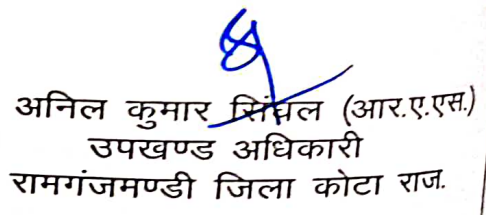 अनिल कुमार सिंघल (आर.ए.एस.)
उपखण्ड अधिकारी
रामगंजमण्डी जिला कोटा राज.